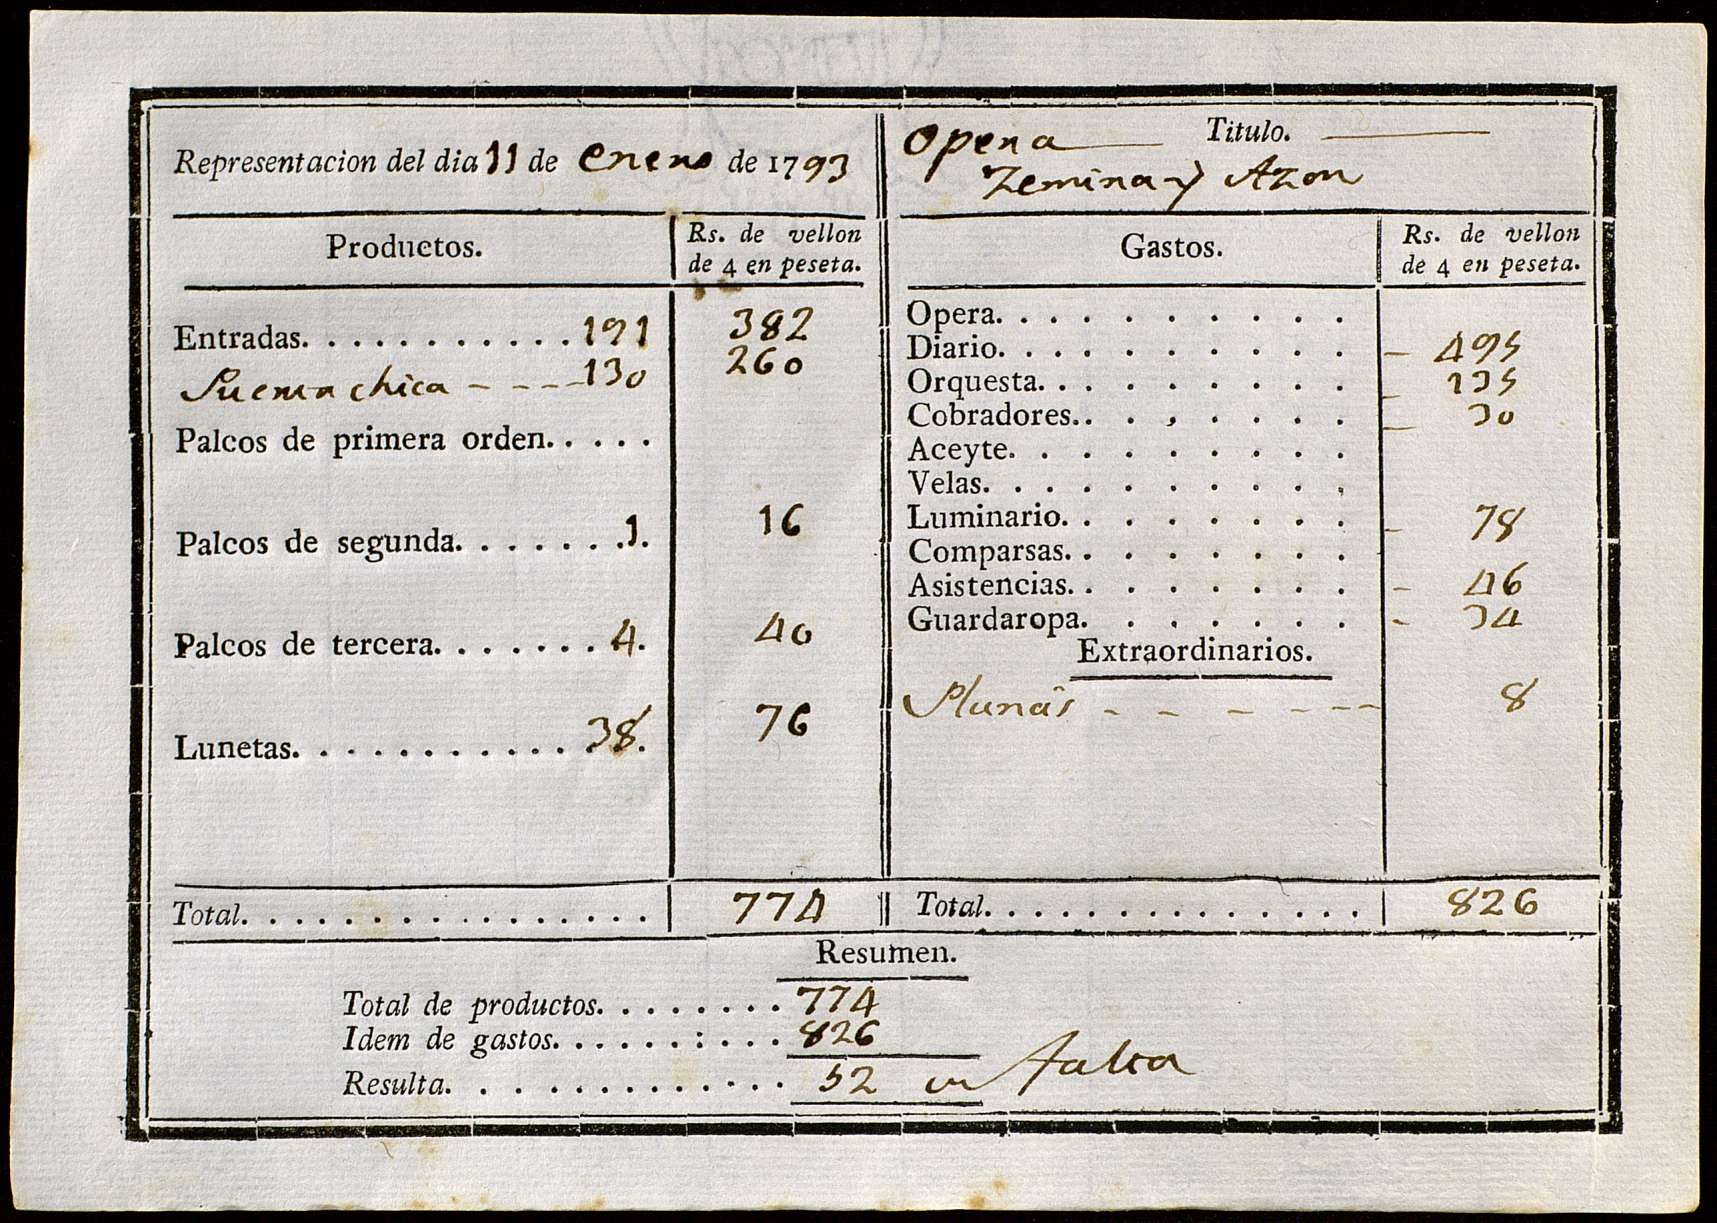 Representacion del dia 11 de enero de 1793
Opera Titulo.
Zemira y Azor
Productos. Rs. de vellon de 4 en peseta.
Entradas. . . . . . . . . . . . 191 382
Puerta chica - - - - 130 260
Palcos de primera orden. . . . .
Palcos de segunda. . . . . . . .1. 16
Palcos de tercera. . . . . . . 4. 40
Lunetas. . . . . . . . . . . . 38. 76
Total. . . . . . . . . . . . . . . . . 774
Gastos. Rs. de vellon de 4 en peseta.
Opera. . . . . . . . . .
Diario. . . . . . . . . . - 495
Orquesta. . . . . . . . . - 135
Cobradores. . . . . . . . - 30
Aceyte. . . . . . . . .
Velas. . . . . . . . . .
Luminario. . . . . . . . - 78
Comparsas. . . . . . . .
Asistencias. . . . . . . - 46
Guardaropa. . . . . . . - 34
Extraordinarios.
- - - - - - 8
Total. . . . . . . . . . . . . . . 826
Resumen.
Total de productos. . . . . . . . 774
Idem de gastos. . . . . . : . . . 826
Resulta. . . . . . . . . . . . . . 52 en falta